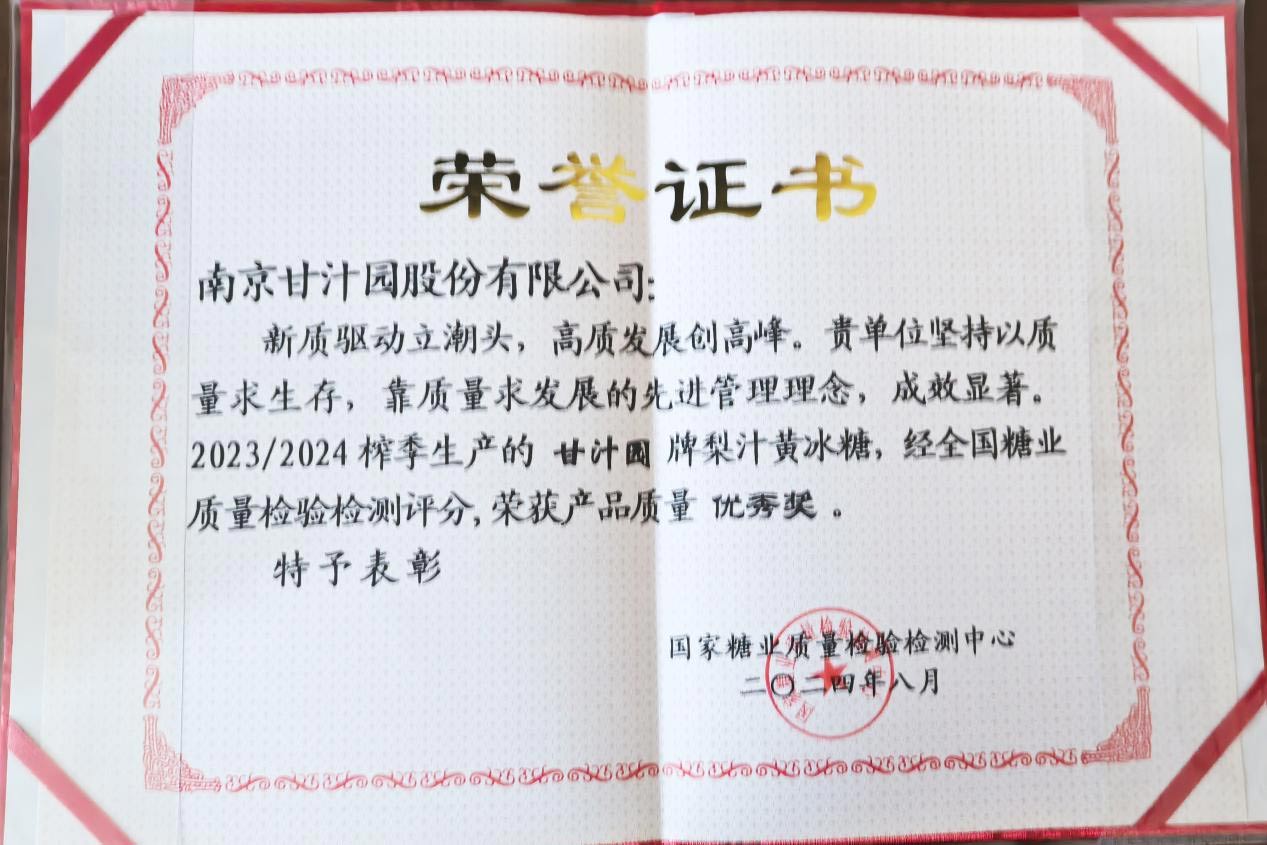 荣誉证书
南京甘汁园股份有限公司:
新质驱动立潮头，高质发展创高峰。贵单位坚持以质
量求生存，靠质量求发展的先进管理理念，成效显著。
2023/2024榨季生产的 甘汁园 牌梨汁黄冰糖，经全国糖业
质量检验检测评分，荣获产品质量 优秀奖 。
特予表彰
国家糖业质量检验检测中心
二〇二四年八月